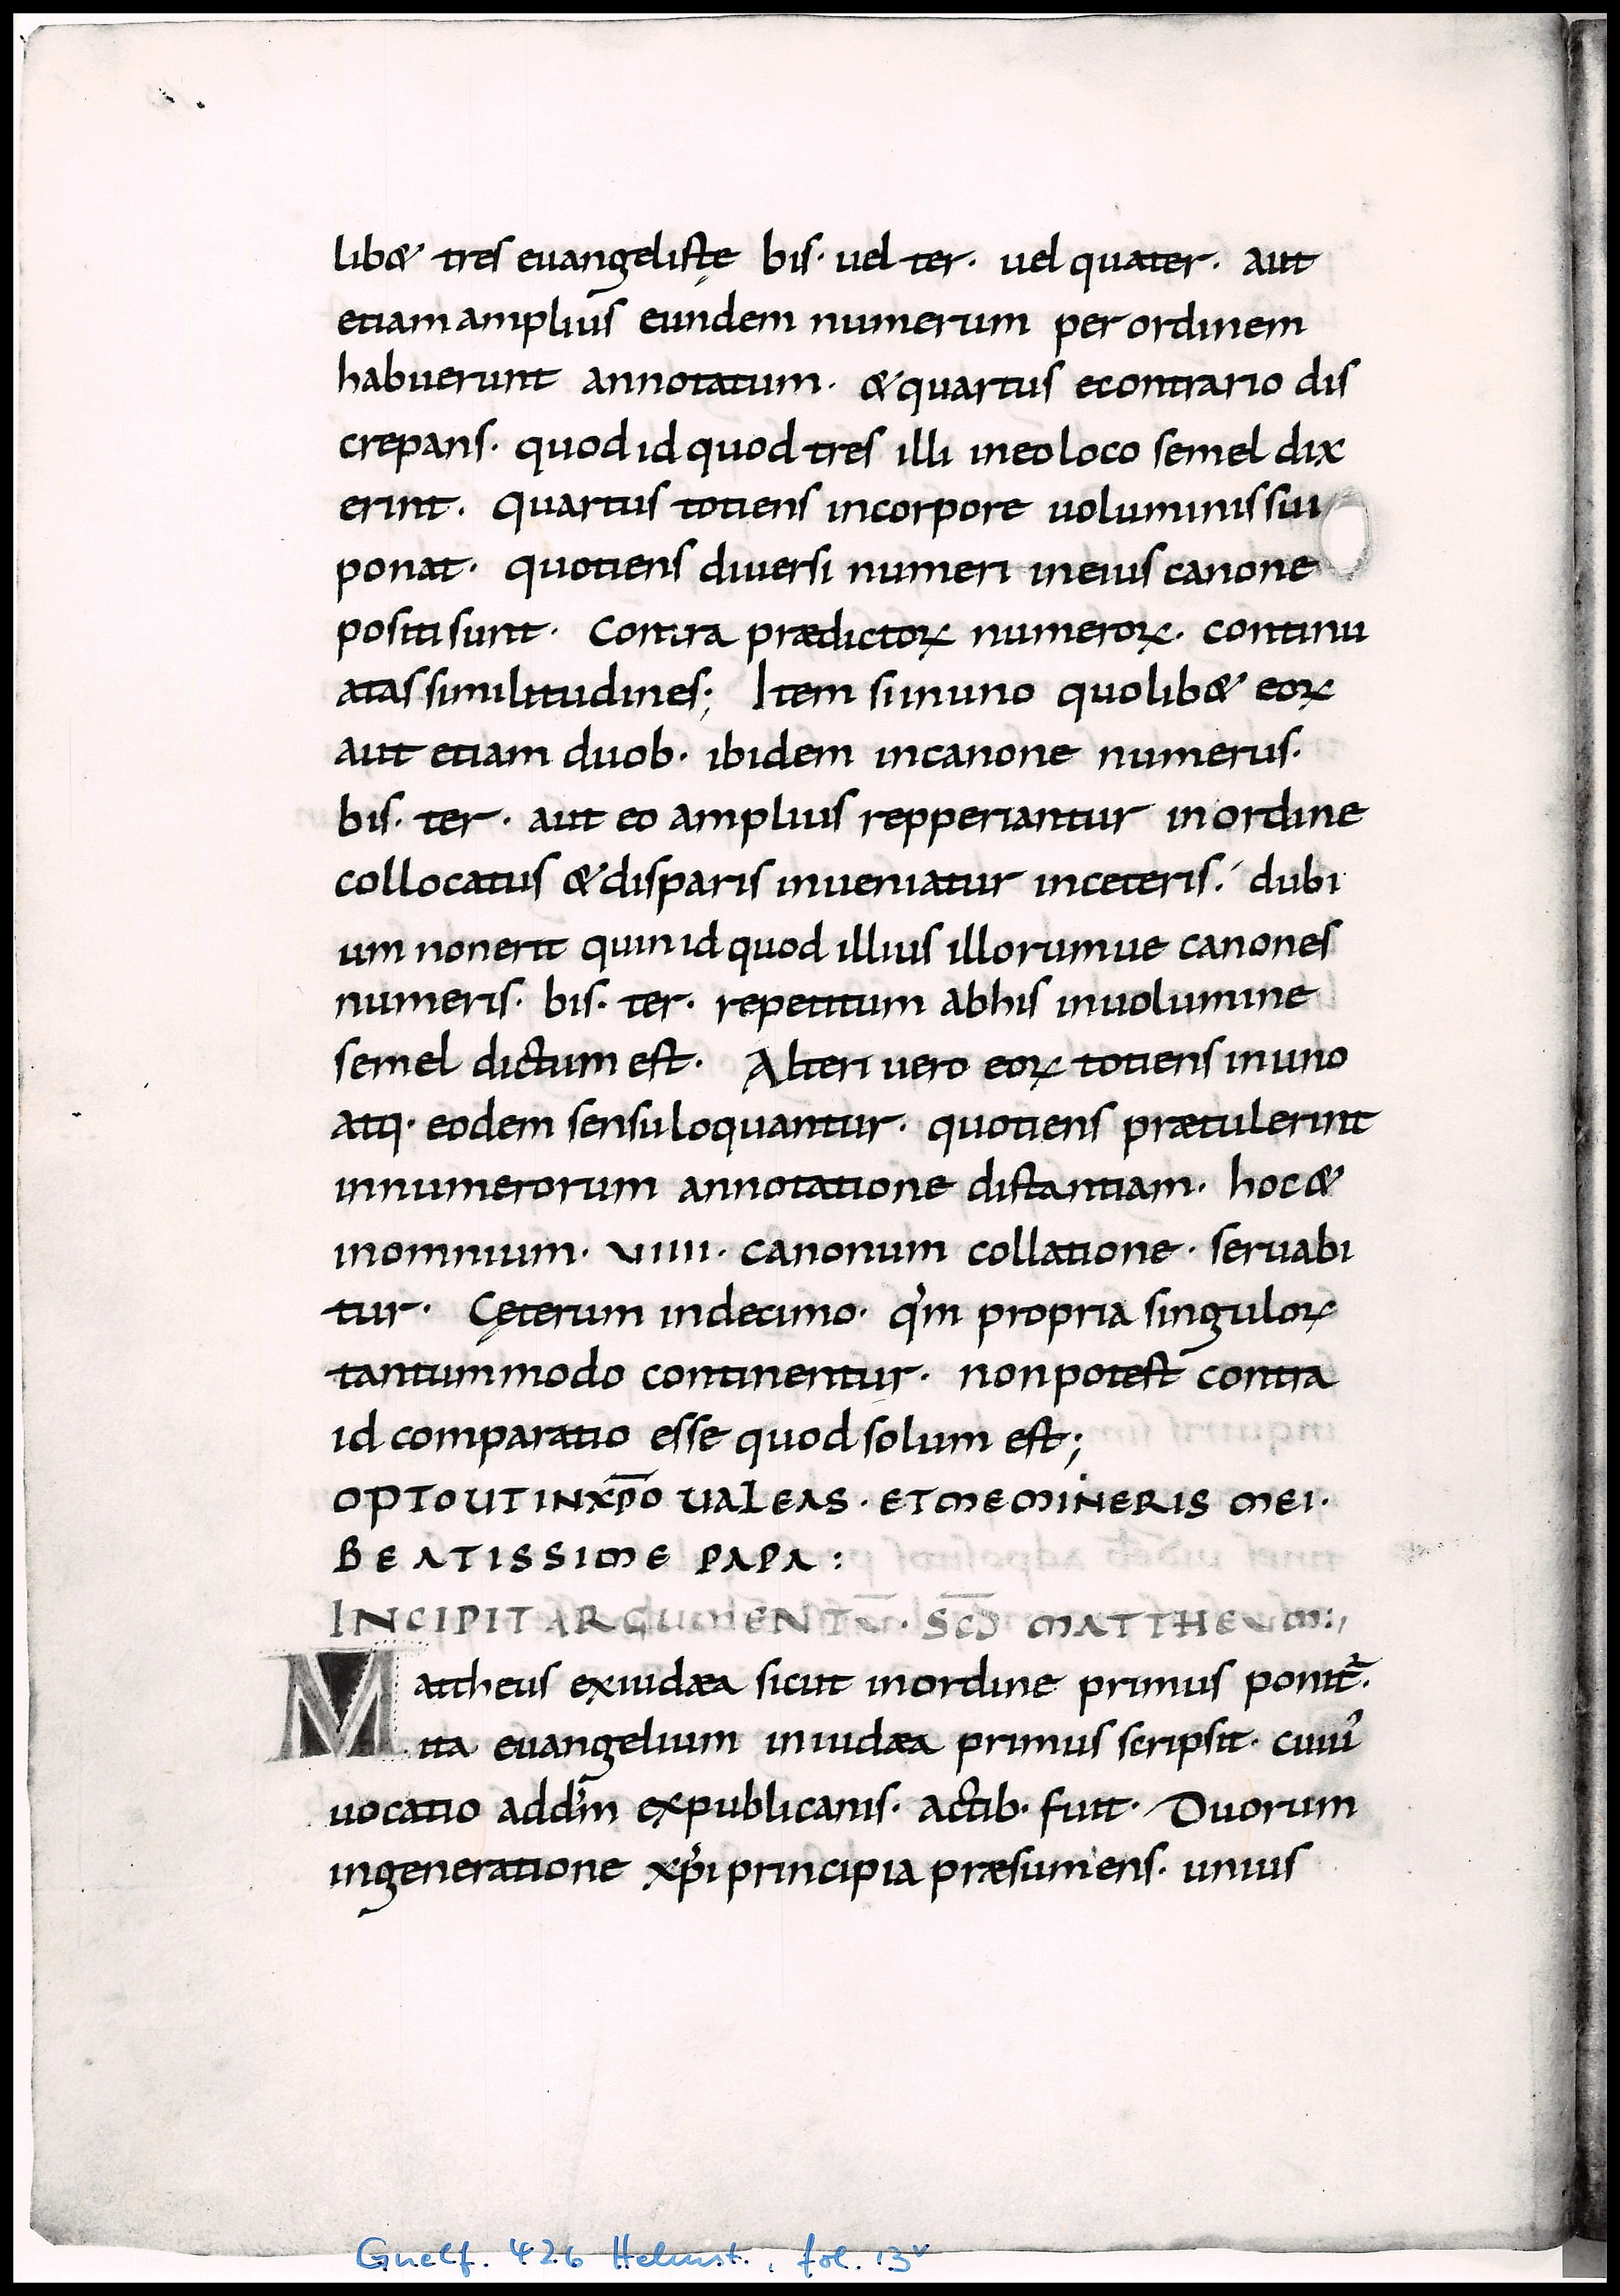 lib& tres euangelistę bis· uel ter· uel quater· aut
etiam amplius eundem numerum per ordinem
habuerunt annotatum· & quartus econtrario dis
crepans· quod id quod tres illi in eo loco semel dix
erint· quartus totiens in corpore uoluminis sui
ponat· quotiens diuersi numeri in eius canone
positi sunt· Contra prædictoꝝ numeroꝝ· continu
atas similitudines; Item si in uno quolib& eoꝝ
aut etiam duob· ibidem in canone numerus·
bis· ter· aut eo amplius repperiantur in ordine
collocatus & disparis inueniatur in ceteris· dubi
um non erit quin id quod illius illorumue canones
numeris· bis· ter· repetitum ab his in uolumine
semel dictum est· Alteri uero eoꝝ totiens in uno
atq· eodem sensu loquantur· quotiens prætulerint
in numerorum annotatione distantiam· hoc &
in omnium· VIIII· canonum collatione· seruabi
tur· Cęterum in decimo· qm̄ propria singuloꝝ
tantummodo continentur· non potest contra
id comparatio esse quod solum est;
OPTO UT IN XP̅O UALEAS· ET MEMINERIS MEI·
BEATISSIME PAPA:
INCIPIT ARGUMENTV̅· SC̅D MATTHEVM:,
Mattheus ex iudæa sicut in ordine primus ponit᷑·
ita euangelium in iudæa primus scripsit· cuiuꝰ
uocatio ad dm̄ ex publicanis· actib· fuit· Duorum
in generatione xp̅i principia præsumens· unius
Guelf. 426 Helmst., fol. 13v